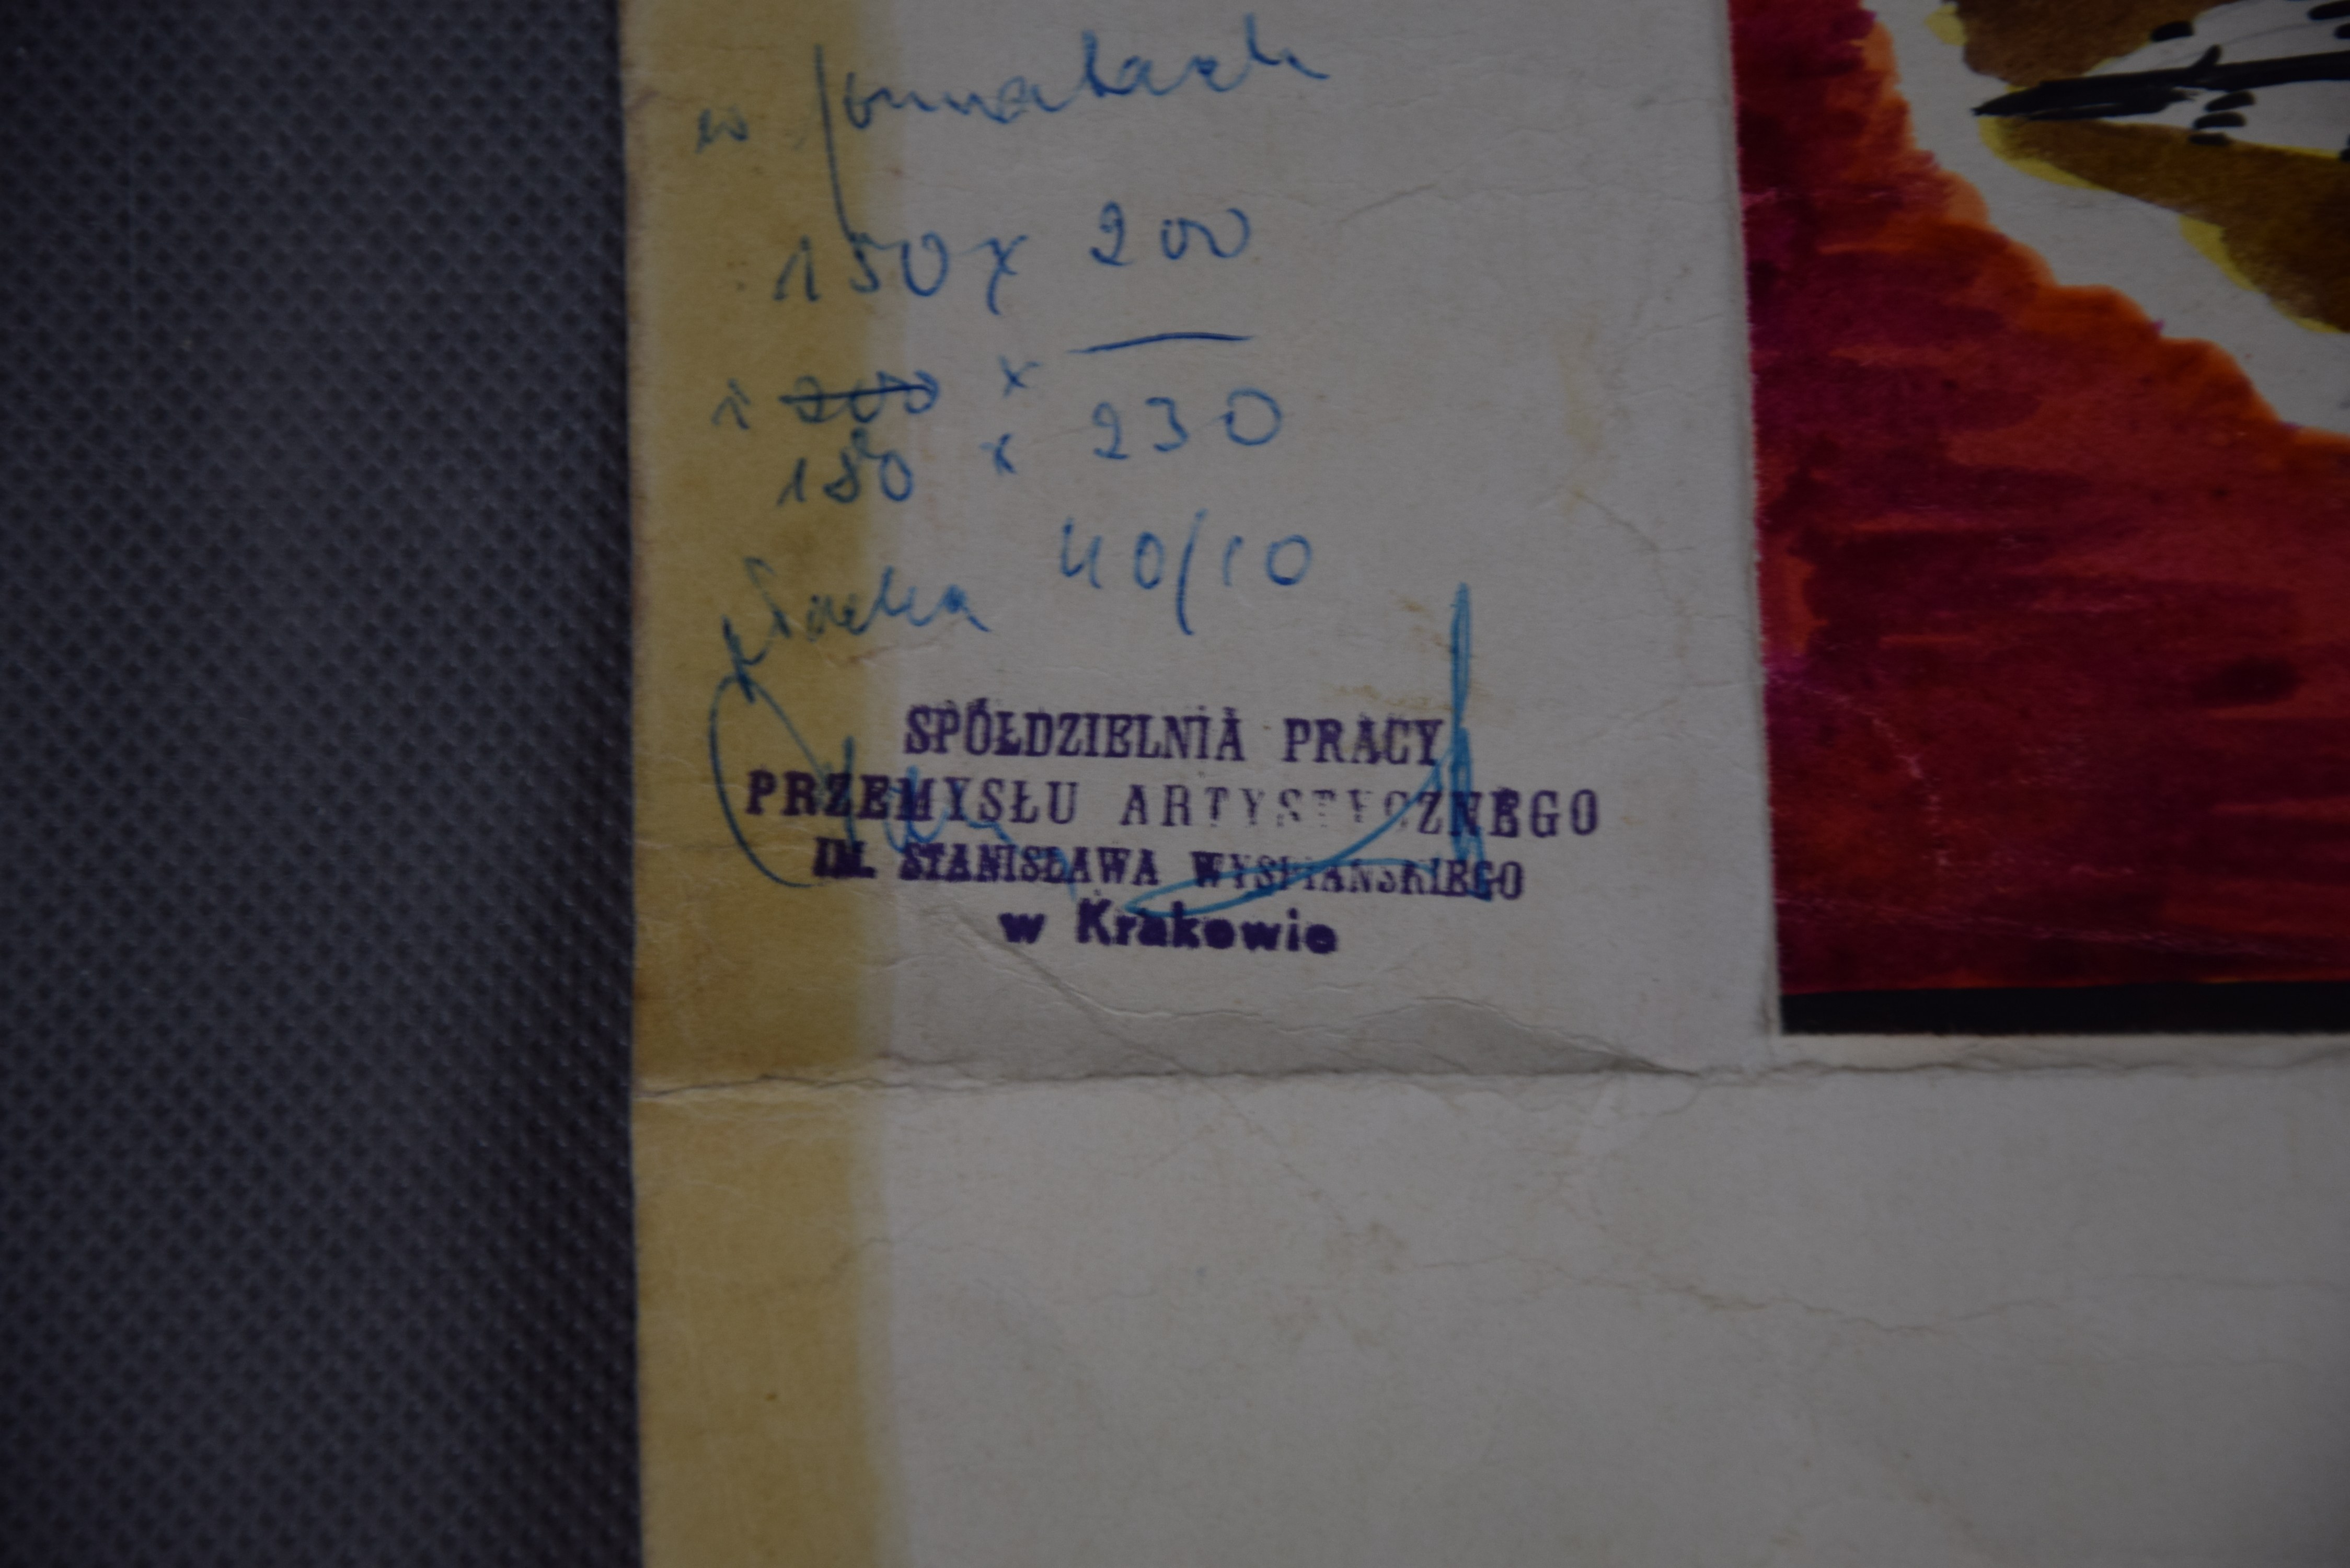 w formatach
150 x 200
i 200 x
180 x 230
40/10
SPÓŁDZIELNIA PRACY
PRZEMYSŁU ARTYSTYCZNEGO
IM. STANISŁAWA WYSPIAŃSKIEGO
w Krakowie